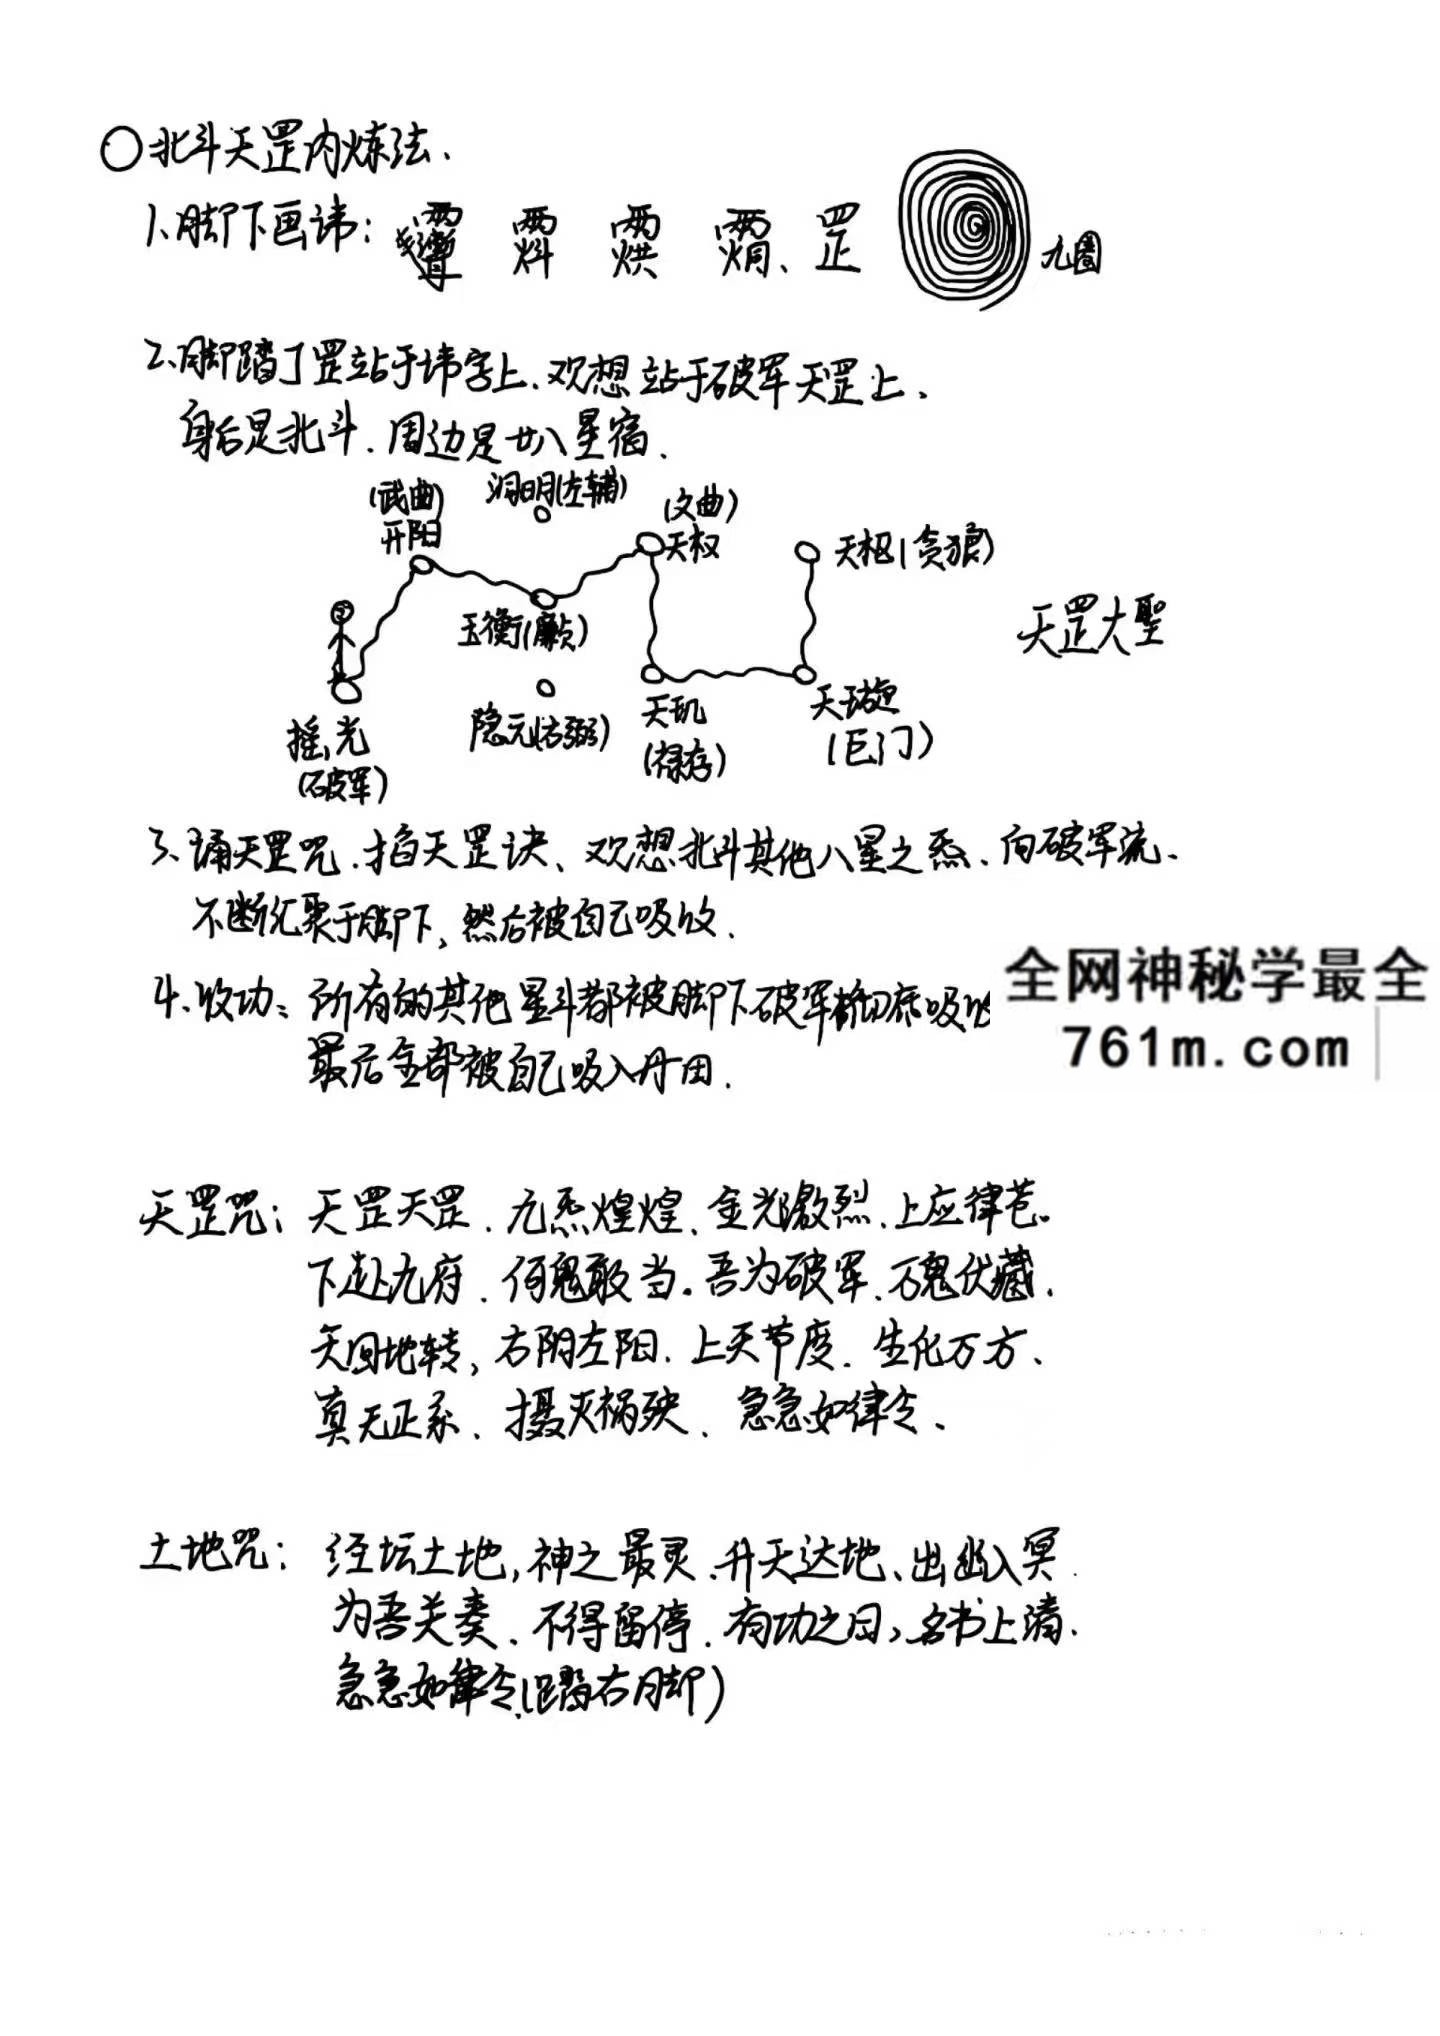 〇北斗天罡内炼法.
1、脚下画讳： 罡 九圈
2、脚踏丁罡站于讳字上、观想站于破军天罡上、
身后是北斗、周边是廿八星宿.
(武曲) 洞明(左辅) (文曲)
开阳 天权 天枢(贪狼)
玉衡(廉贞) 天罡大聖
摇光 隐元(右弼) 天玑 天璇
(破军) (禄存) (巨门)
3、诵天罡咒、掐天罡诀、观想北斗其他八星之炁、向破军流、
不断汇聚于脚下，然后被自己吸收.
4、收功：所有的其他星斗都被脚下破军 吸收
最后全部被自己吸入丹田.
全网神秘学最全
761m.com
天罡咒：天罡天罡、九炁煌煌、金光激烈、上应律苍。
下赴九府、何鬼敢当。吾为破军、万鬼伏藏、
天回地转，右阴左阳、上天节度、生化万方、
真无正系、摄灭祸殃、急急如律令、
土地咒：经坛土地，神之最灵、升天达地、出幽入冥.
为吾关奏、不得留停、有功之日，名书上清.
急急如律令.(踏右脚)